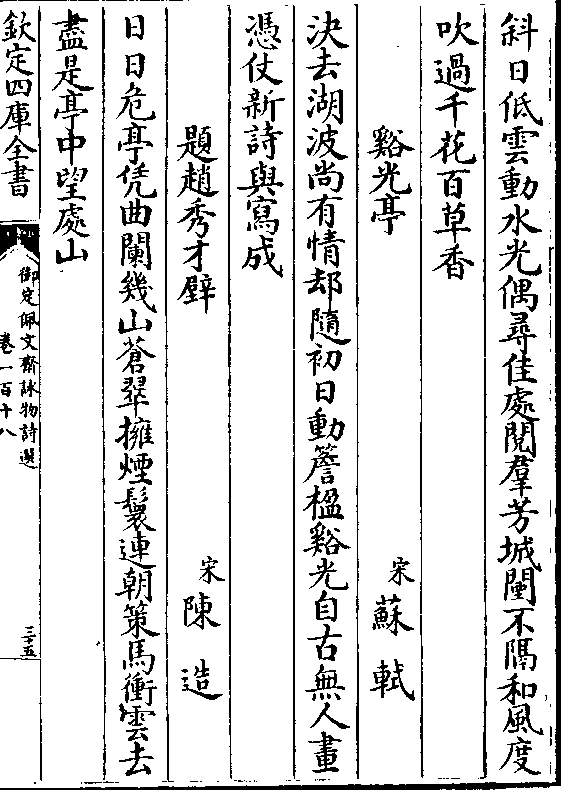 斜日低雲動水光偶尋佳處閱羣芳城闉不隔和風度
吹過千花百草香
谿光亭
宋蘇軾
決去湖波尚有情却隨初日動簷楹谿光自古無人畫
憑仗新詩與寫成
題趙秀才壁
宋陳造
日日危亭凭曲闌幾山蒼翠擁煙鬟連朝策馬衝雲去
盡是亭中望處山
欽定四庫全書
御定佩文齋詠物詩選
卷一百十八
三十五